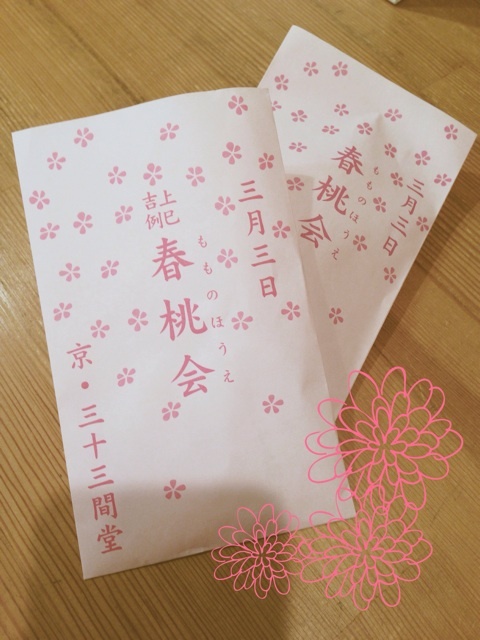 三月三日
上巳
吉例
春桃会
もものほうえ
京・三十三間堂
三月三日
春桃会
もものほうえ